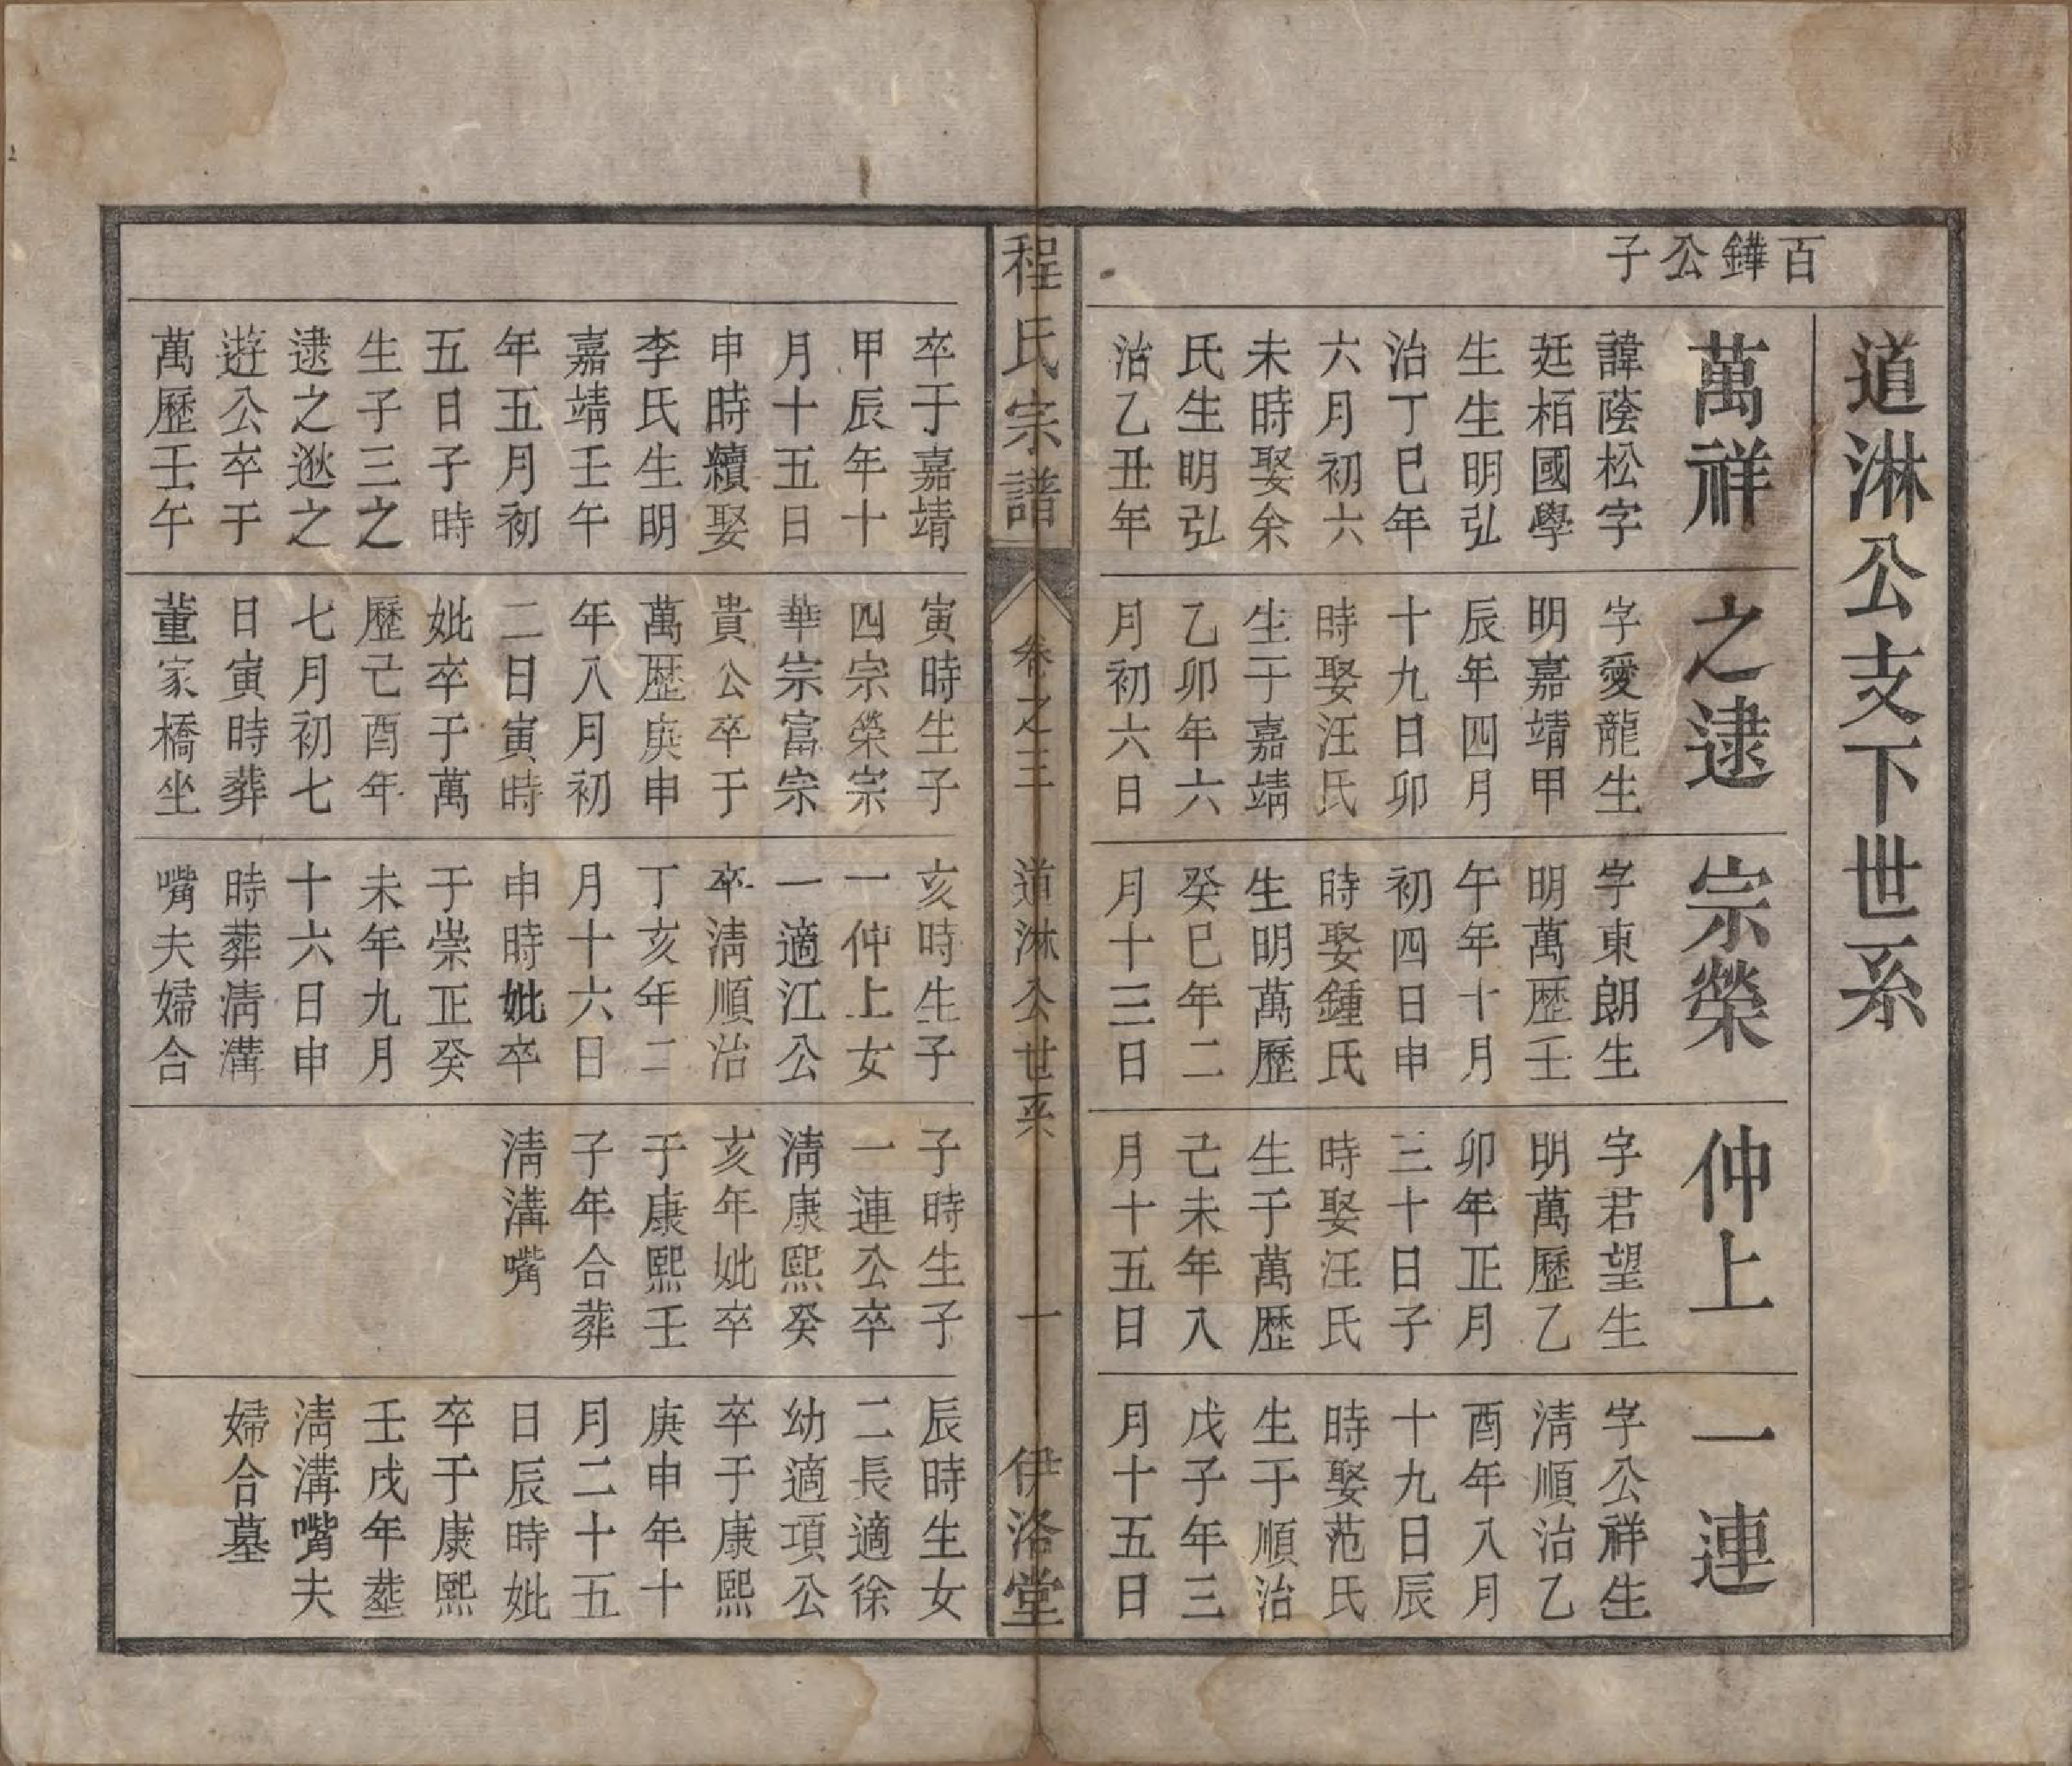 道淋公支下世系
百鏵公子
萬祥
諱蔭松字
廷栢國學
生生明弘
治丁巳年
六月初六
未時娶余
氏生明弘
治乙丑年
之逮
字愛龍生
明嘉靖甲
辰年四月
十九日卯
時娶汪氏
生于嘉靖
乙卯年六
月初六日
宗榮
字東朗生
明萬歷壬
午年十月
初四日申
時娶鍾氏
生明萬歷
癸巳年二
月十三日
仲上
字君望生
明萬歷乙
卯年正月
三十日子
時娶汪氏
生于萬歷
己未年八
月十五日
一連
字公祥生
淸順治乙
酉年八月
十九日辰
時娶范氏
生于順治
戊子年三
月十五日
程氏宗譜
卷之三
道淋公世系
十
伊洛堂
卒于嘉靖
甲辰年十
月十五日
申時續娶
李氏生明
嘉靖壬午
年五月初
五日子時
生子三之
逮之逖之
遊公卒于
萬歷壬午
寅時生子
四宗榮宗
華宗富宗
貴公卒于
萬歷庚申
年八月初
二日寅時
妣卒于萬
歷己酉年
七月初七
日寅時葬
董家橋坐
亥時生子
一仲上女
一適江公
卒淸順治
丁亥年二
月十六日
申時妣卒
于崇正癸
未年九月
十六日申
時葬淸溝
嘴夫婦合
子時生子
一連公卒
淸康熙癸
亥年妣卒
于康熙壬
子年合葬
淸溝嘴
辰時生女
二長適徐
幼適項公
卒于康熙
庚申年十
月二十五
日辰時妣
卒于康熙
壬戌年塟
淸溝嘴夫
婦合墓